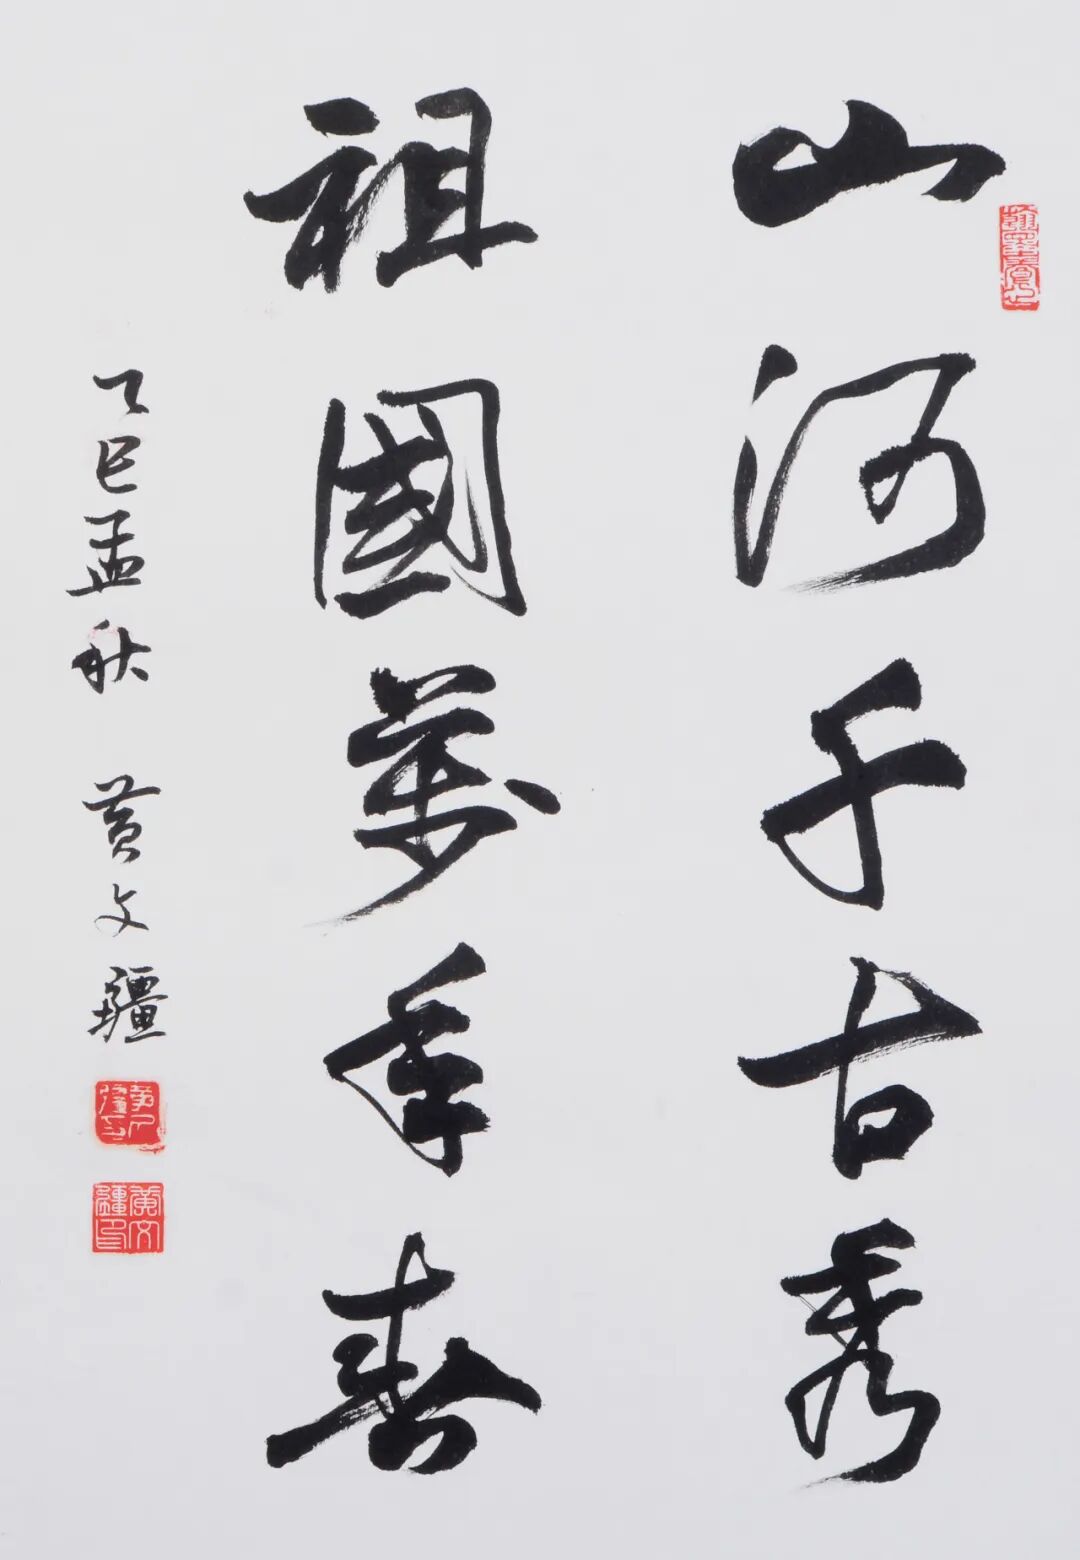 山河千古秀
祖國萬年春
乙巳孟秋 黄文疆
黄文疆印